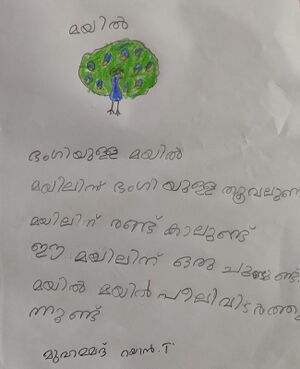 മയിൽ
ഭംഗിയുള്ള മയിൽ
മയിലിന് ഭംഗിയുള്ള തൂവലുണ
മയിലിന് രണ്ട് കാലുണ്ട്
ഈ മയിലിന് ഒരു ചുണ്ടുണ്ട
മയിൽ മയിൽ പീലിവിടർത്തു
ന്നുണ്ട്
മുഹമ്മദ് റയാൻ.T